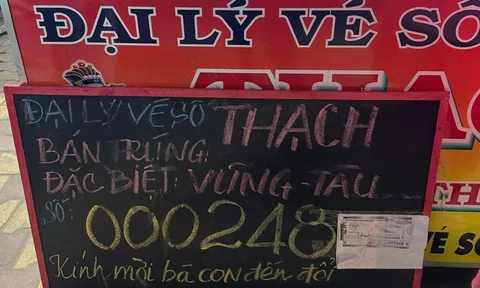 ĐẠI LÝ VÉ SỐ
ĐẠI LÝ VÉ SỐ THẠCH
BÁN TRÚNG:
ĐẶC BIỆT: VŨNG-TÀU
SỐ: 000248
Kính mời bà con đến đổi
VÉ SỐ